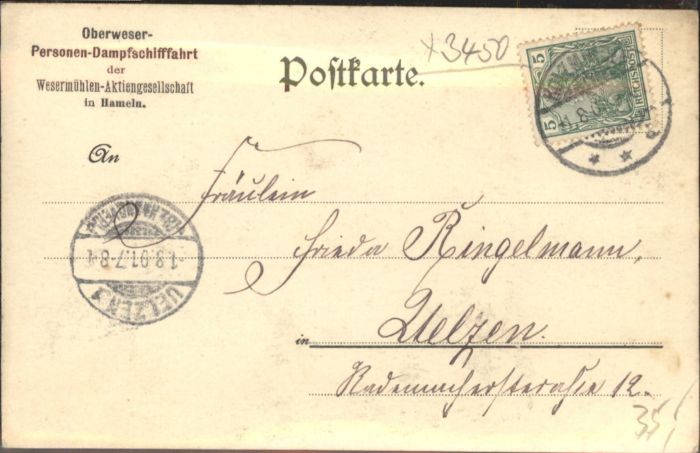 Oberweser-
Personen-Dampfschifffahrt
der
Wesermühlen-Aktiengesellschaft
in Hameln.
x3450
Postkarte.
5
5
REICHSPOST
An
Fräulein
Frieda Ringelmann,
in Uelzen.
Rademacherstrasse 12.
(BZ. HANNOVER)
1.8.01.7-8
UELZEN 1
35